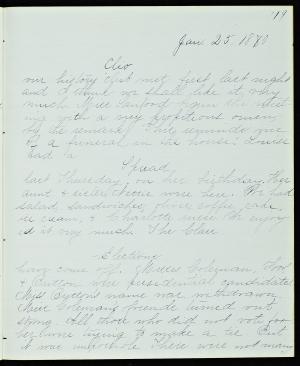 19
Jan 25, 1878
Clio
our history club met first last night
and I think we shall like it very
much. Miss Sanford began the
ing with a very propitious omen
by the remark, "This reminds me
of a funeral in the house." Louise
had a
Spread
last Thursday, on her birthday. Her
aunt & sister were here. We had
salad, sandwiches, olives, coffee, cake,
ice cream, & Charlotte russe. We enjoy
ed it very much. The Class
Elections
have come off. Misses Coleman,
& were presidential candidates
Miss name was withdrawn.
Miss Coleman's friends turned out
strong. All those who did not vote for
her were trying to make a tie. But
it was impossible. There were not many